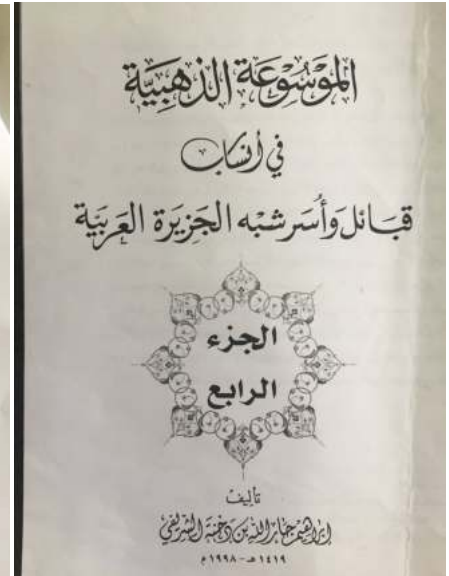 الموسوعة الذهبية
في أنساب
قبائل وأسر شبه الجزيرة العربية
الجزء
الرابع
تأليف
إبراهيم جار الله بن دخنة الشريفي
١٤١٩هـ - ١٩٩٨م